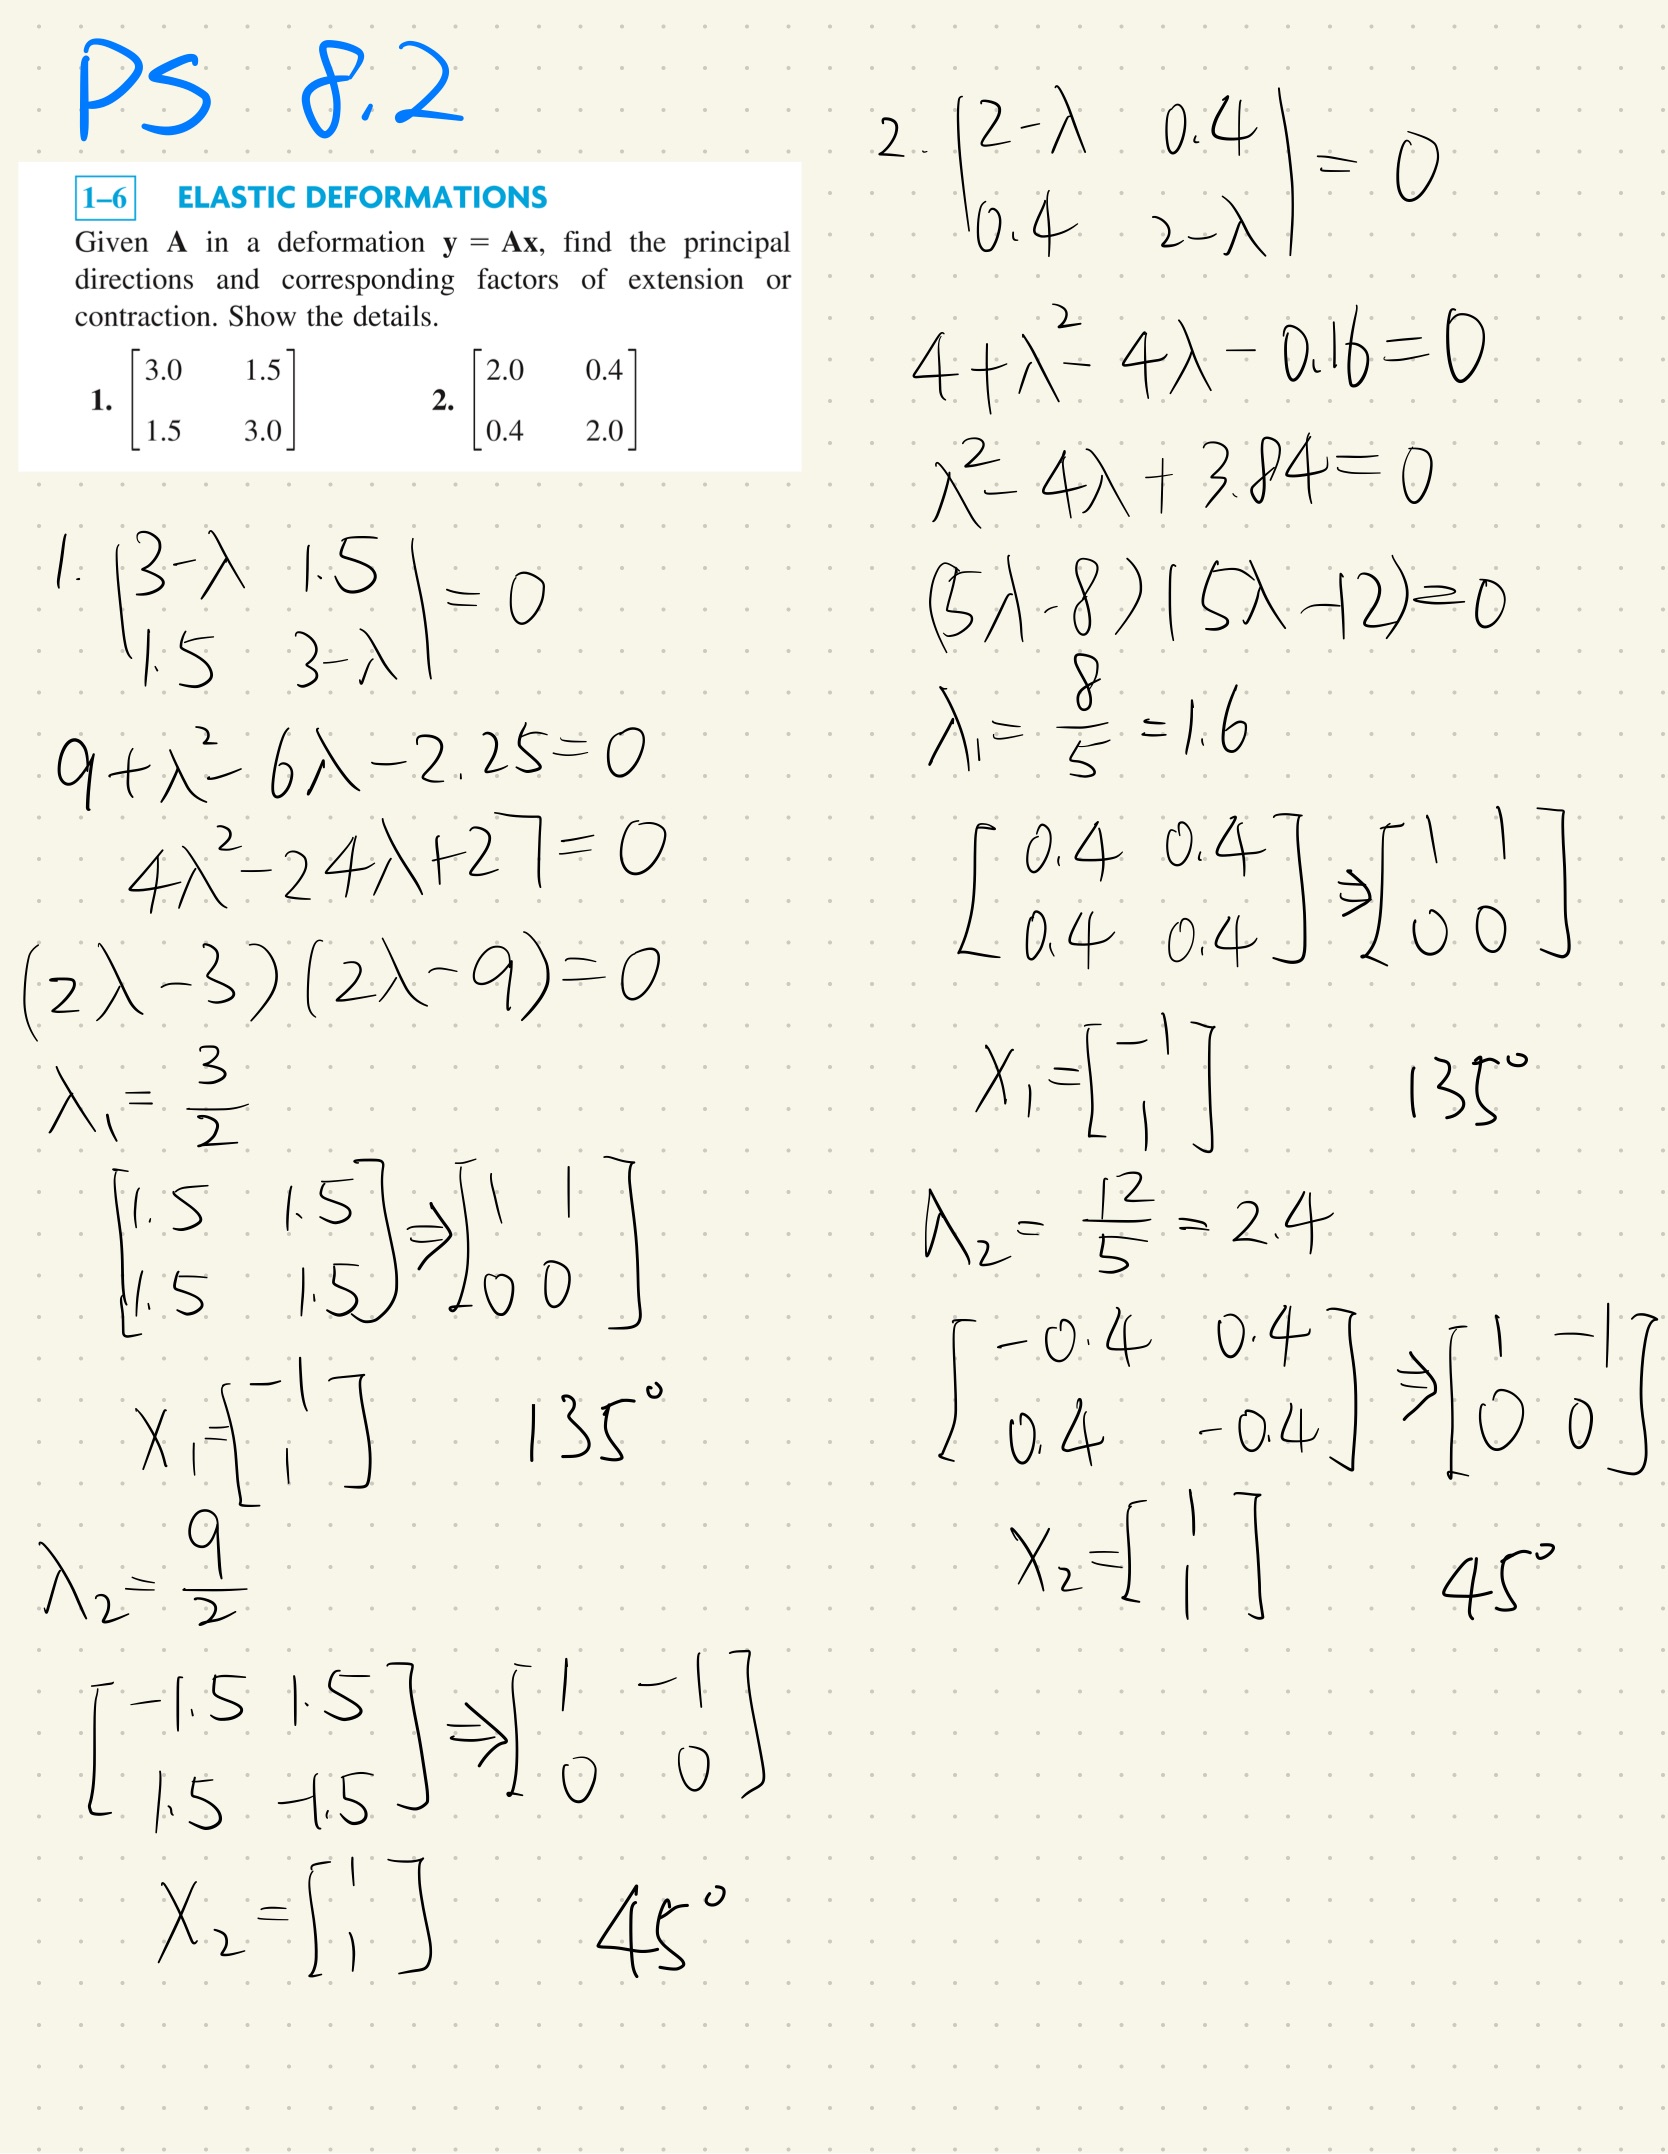 PS 8.2
1–6 ELASTIC DEFORMATIONS
Given A in a deformation y = Ax, find the principal
directions and corresponding factors of extension or
contraction. Show the details.
1. [3.0 1.5
1.5 3.0]
2. [2.0 0.4
0.4 2.0]
1. |3-λ 1.5
1.5 3-λ| = 0
9+λ²-6λ-2.25=0
4λ²-24λ+27=0
(2λ-3)(2λ-9)=0
λ₁= 3/2
[1.5 1.5
1.5 1.5] ⇒ [1 1
0 0]
X₁=[-1
1] 135°
λ₂= 9/2
[-1.5 1.5
1.5 -1.5] ⇒ [1 -1
0 0]
X₂=[1
1] 45°
2. |2-λ 0.4
0.4 2-λ| = 0
4+λ²-4λ-0.16=0
λ²-4λ+3.84=0
(5λ-8)(5λ-12)=0
λ₁= 8/5 =1.6
[0.4 0.4
0.4 0.4] ⇒ [1 1
0 0]
X₁=[-1
1] 135°
λ₂= 12/5 = 2.4
[-0.4 0.4
0.4 -0.4] ⇒ [1 -1
0 0]
X₂=[1
1] 45°